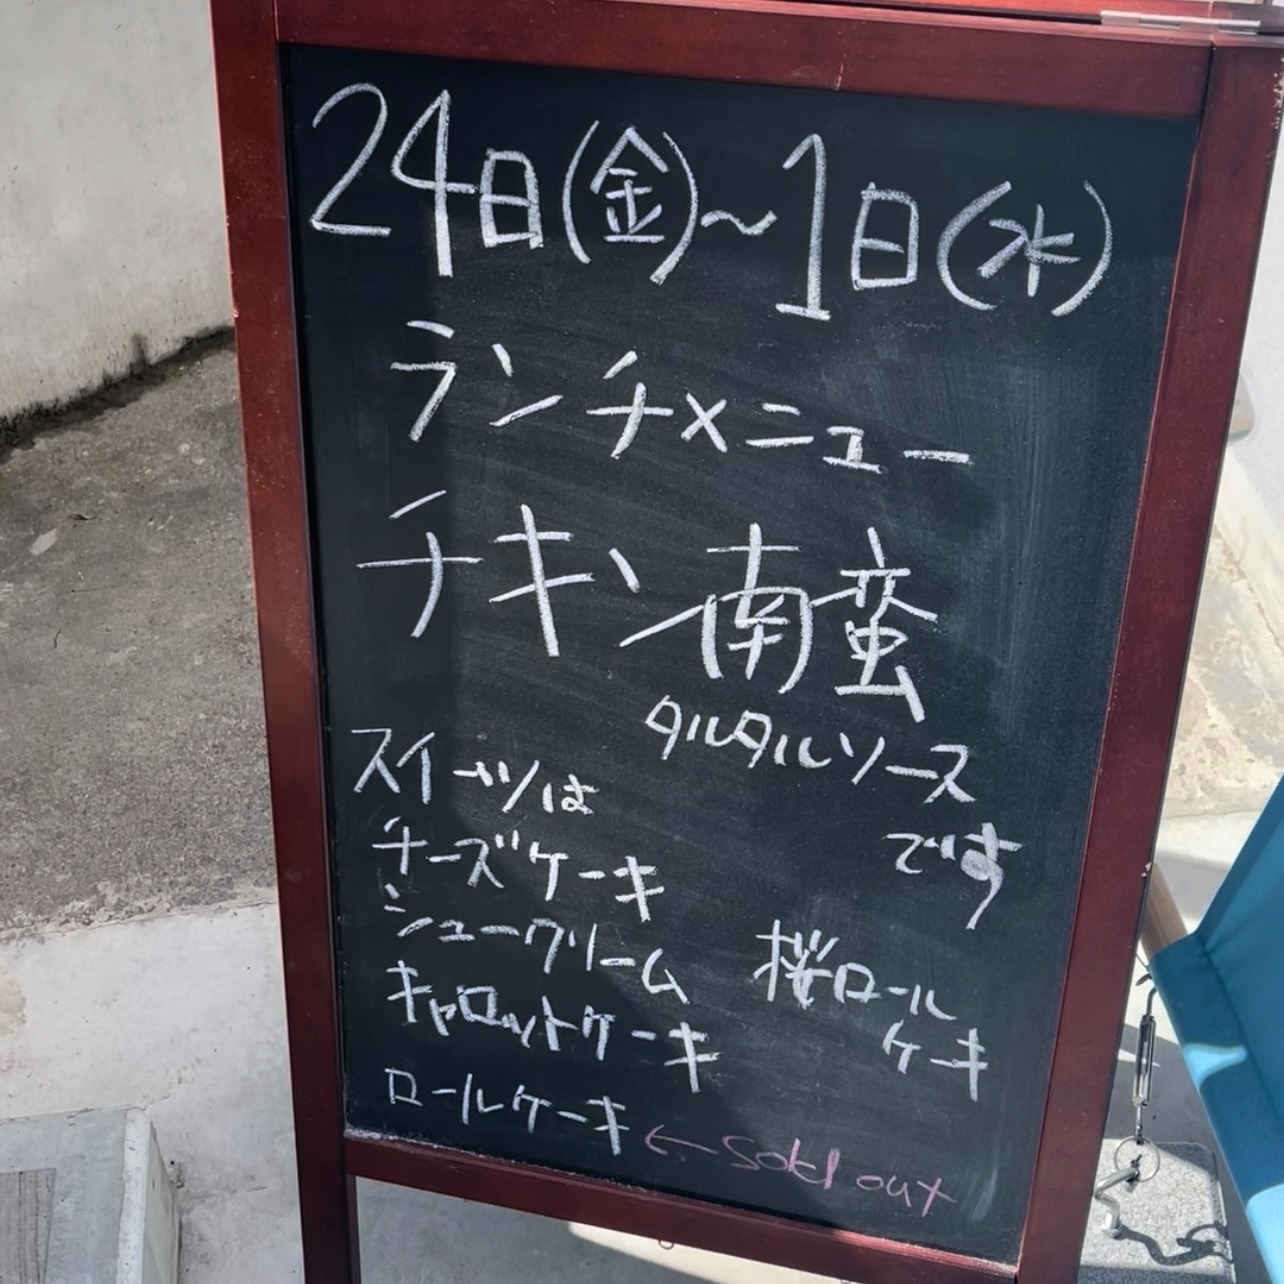 24日(金)~1日(水)
ランチメニュー
チキン南蛮
タルタルソース
です
スイーツは
チーズケーキ
シュークリーム
キャロットケーキ
ロールケーキ ←Sold out
桜ロール
ケーキ